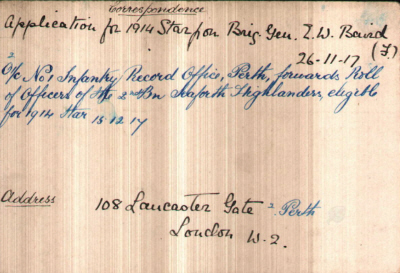 Correspondence
Application for 1914 Star for Brig. Gen. E.W. Baird
26-11-17 (F.)
2
O/c No 1 Infantry Record Office, Perth, forwards Roll
of Officers of the 2nd Bn Seaforth Highlanders, eligible
for 1914 Star 15 12 17
Address
108 Lancaster Gate 2 Perth
London W-2.